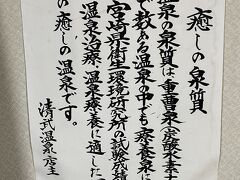 癒しの泉質
温泉の泉質は、重曹泉(炭酸水素
数ある温泉の中でも療養泉に
宮崎県衛生環境研究所の試験
温泉治療、温泉療養に適した
の癒しの温泉です。
清武温泉店主